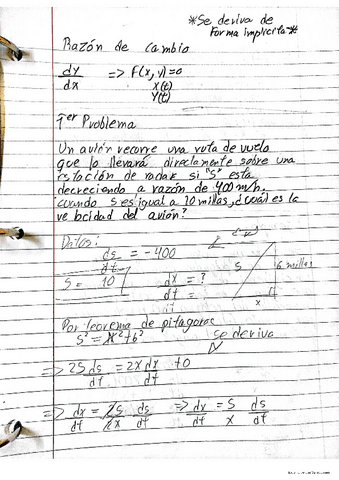 *Se deriva de
forma implicita*
Razón de cambio
dy/dx => F(x,y)=0
X(t)
Y(t)
1er Problema
Un avión recorre una ruta de vuelo
que lo llevará directamente sobre una
estación de radar si "S" esta
decreciendo a razón de 400 m/h.
cuando s es igual a 10 millas, ¿cuál es la
velocidad del avión?
Datos:
ds/dt = -400
S = 10
dx/dt = ?
S
6 millas
x
Por teorema de pitagoras
S² = X² + 6²
se deriva
=> 2S ds/dt = 2X dx/dt + 0
=> dx/dt = 2S/2X ds/dt => dx/dt = S/X ds/dt